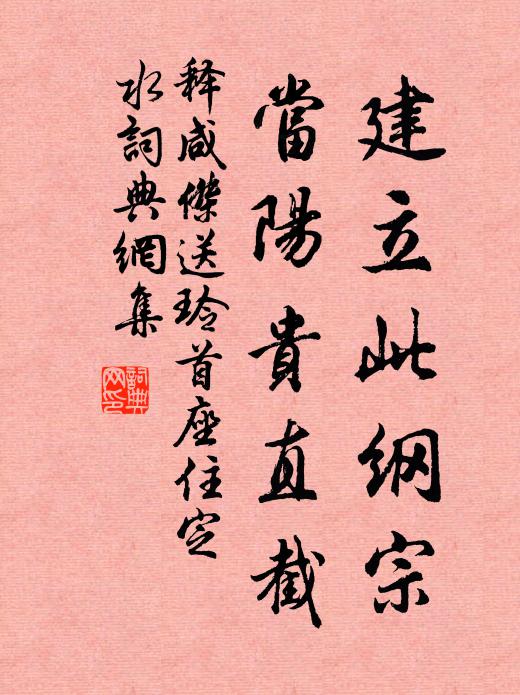 建立此纲宗
當陽貴直截
释咸傑送玲首座住定
水詞典網集
詞典
网印